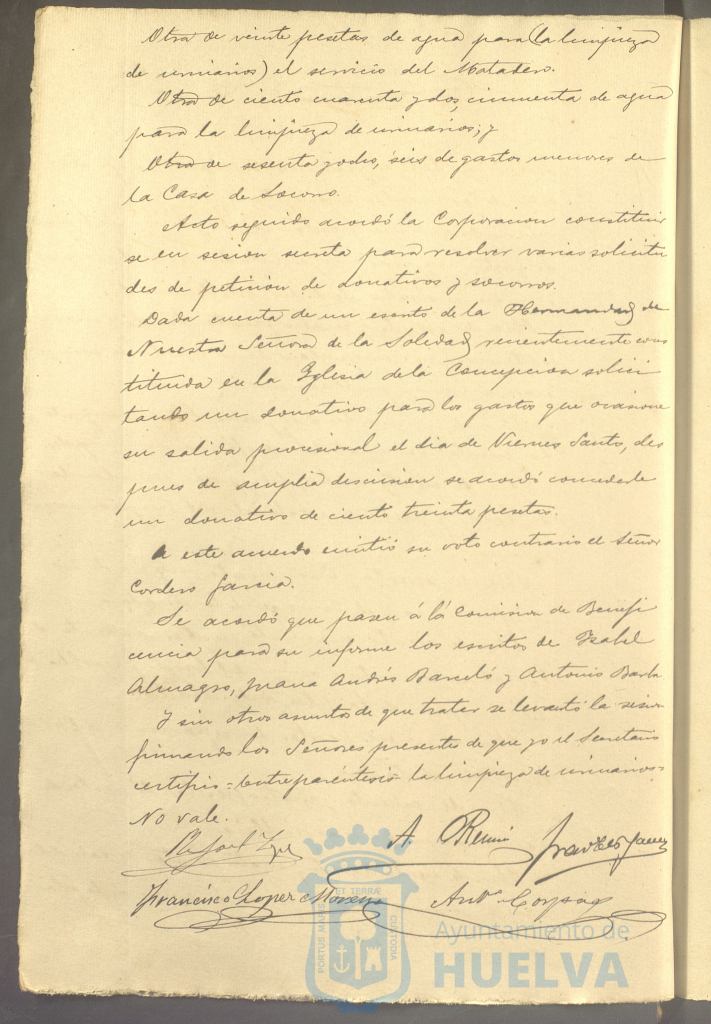 Otra de veinte pesetas de agua para (la limpieza
de urinarios) el servicio del Matadero.
Otra de ciento cuarenta y dos, cincuenta de agua
para la limpieza de urinarios; y
Otra de sesenta y ocho, seis de gastos menores de
la Casa de Socorro.
Acto seguido acordó la Corporacion constituir
se en sesion secreta para resolver varias solicitu
des de peticion de donativos y socorros.
Dada cuenta de un escrito de la Hermandad de
Nuestra Señora de la Soledad recientemente cons
tituida en la Yglesia de la Concepcion solici
tando un donativo para los gastos que ocasione
su salida procesional el dia de Viernes Santo, des
pues de amplia discusion se acordó concederle
un donativo de ciento treinta pesetas.
A este acuerdo emitió su voto contrario el Señor
Cordero Garcia.
Se acordó que pasen á la Comision de Benefi
cencia para su informe los escritos de Ysabel
Almagro, Juana Andrés Barceló y Antonio Barba
Y sin otros asuntos de que tratar se levantó la sesion
firmando los Señores presentes de que yo el Secretario
certifico = Entre paréntesis = la limpieza de urinarios =
No vale.
A.
Francisco Lopez Moreno Antº
PORTUS MARIS ET TERRÆ CUSTODIA
Ayuntamiento de
HUELVA